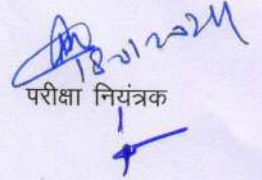 18-01-2024
परीक्षा नियंत्रक